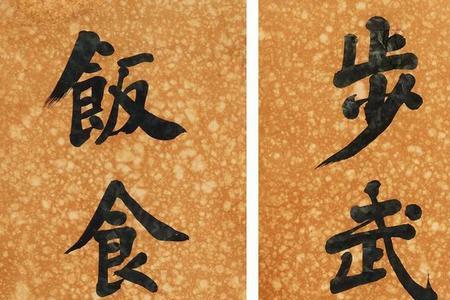 步武
飯食